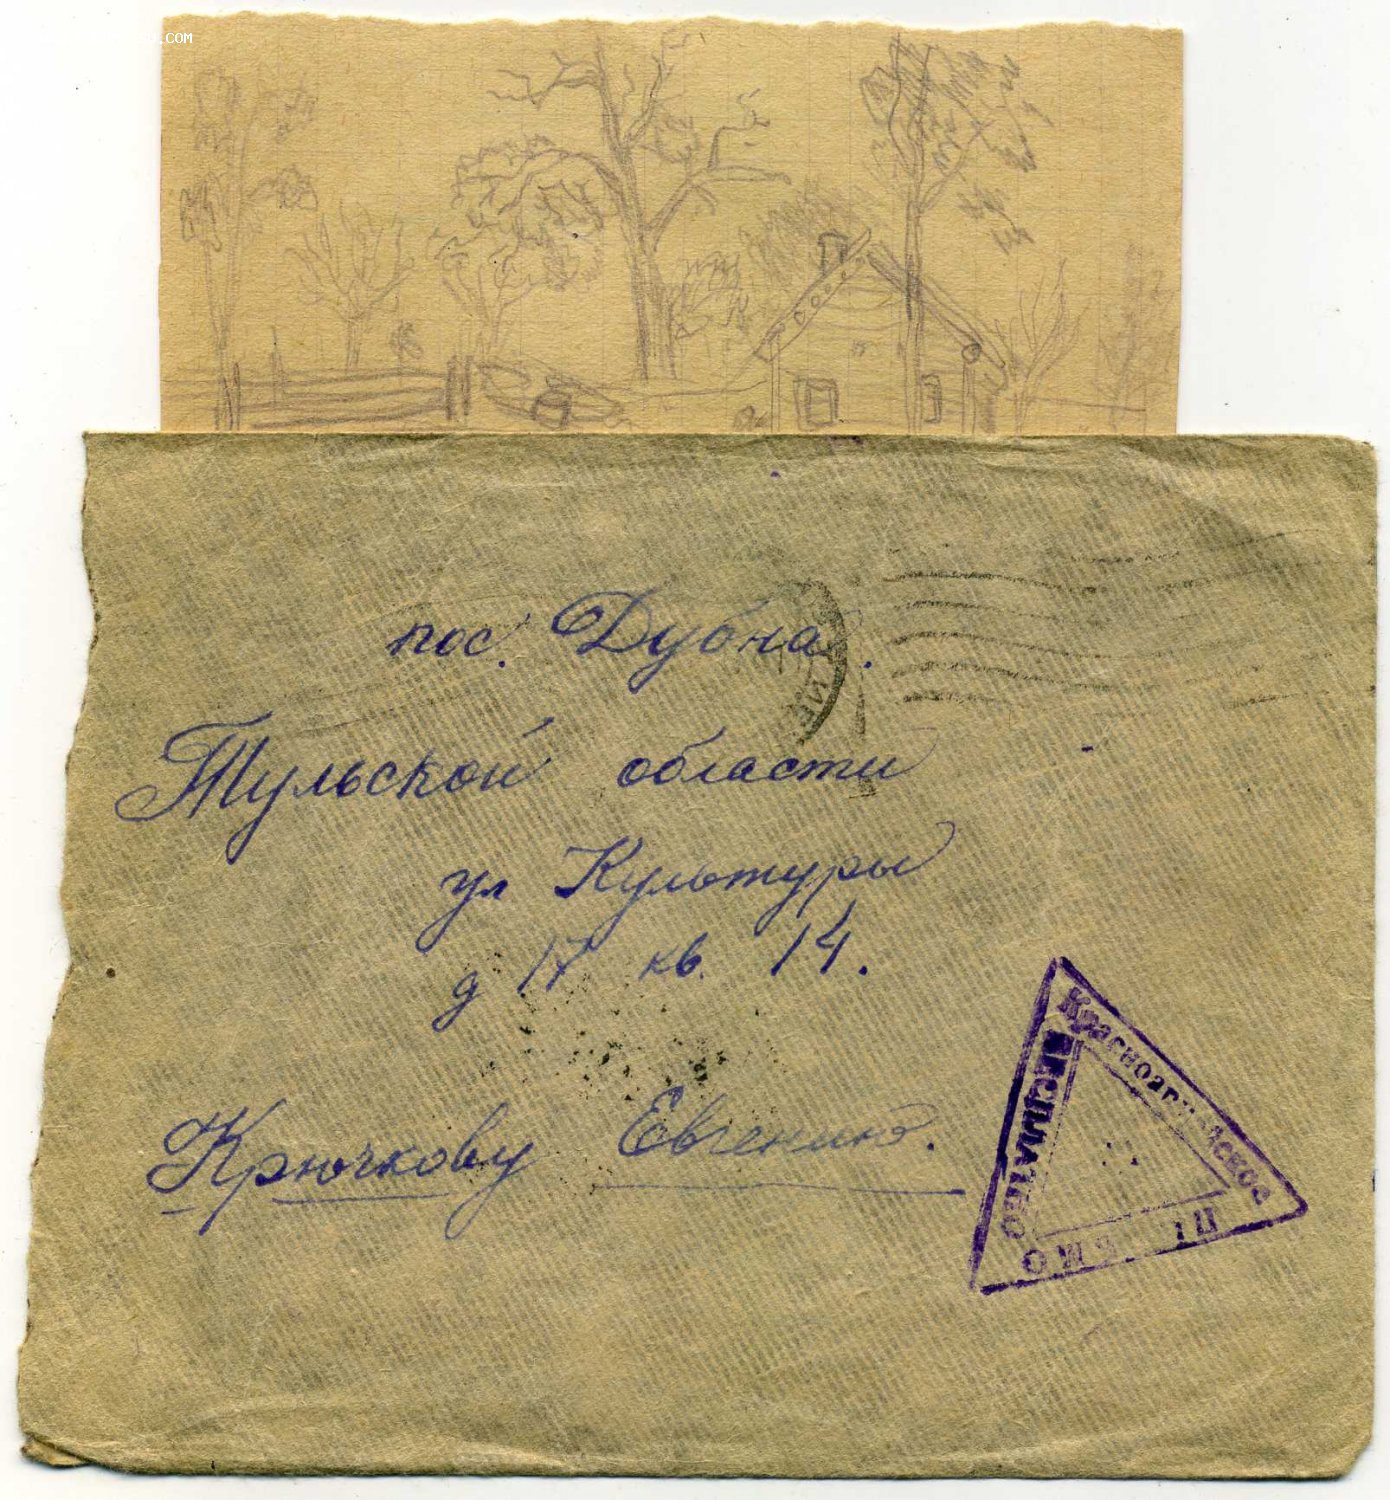 .com
пос. Дубна.
Тульской области
ул Культуры
д 17 кв. 14.
Крючкову Евгению.
Красноармейское
Бесплатно